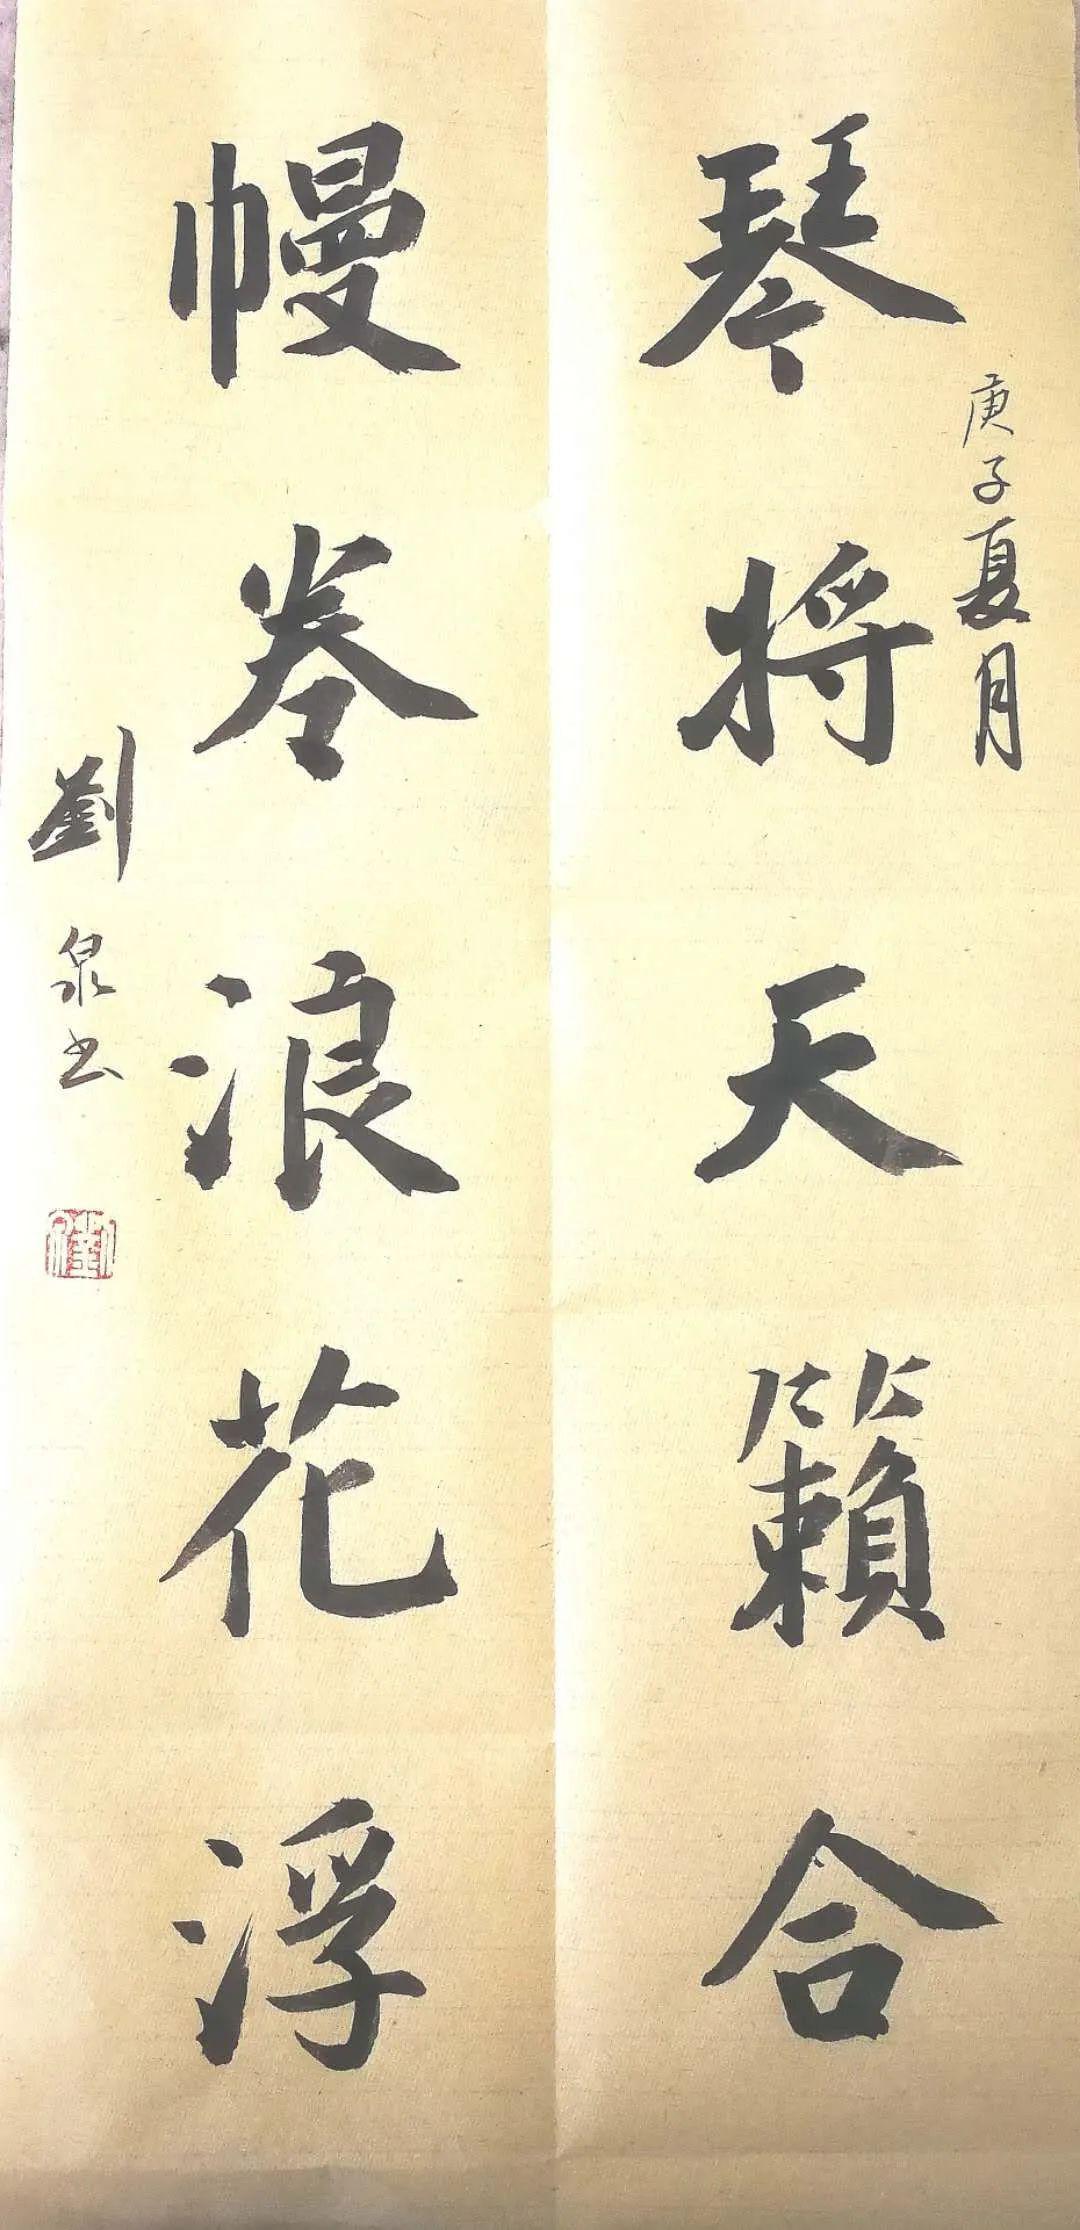 庚子夏月
琴将天籟合
幔卷浪花浮
劉泉书